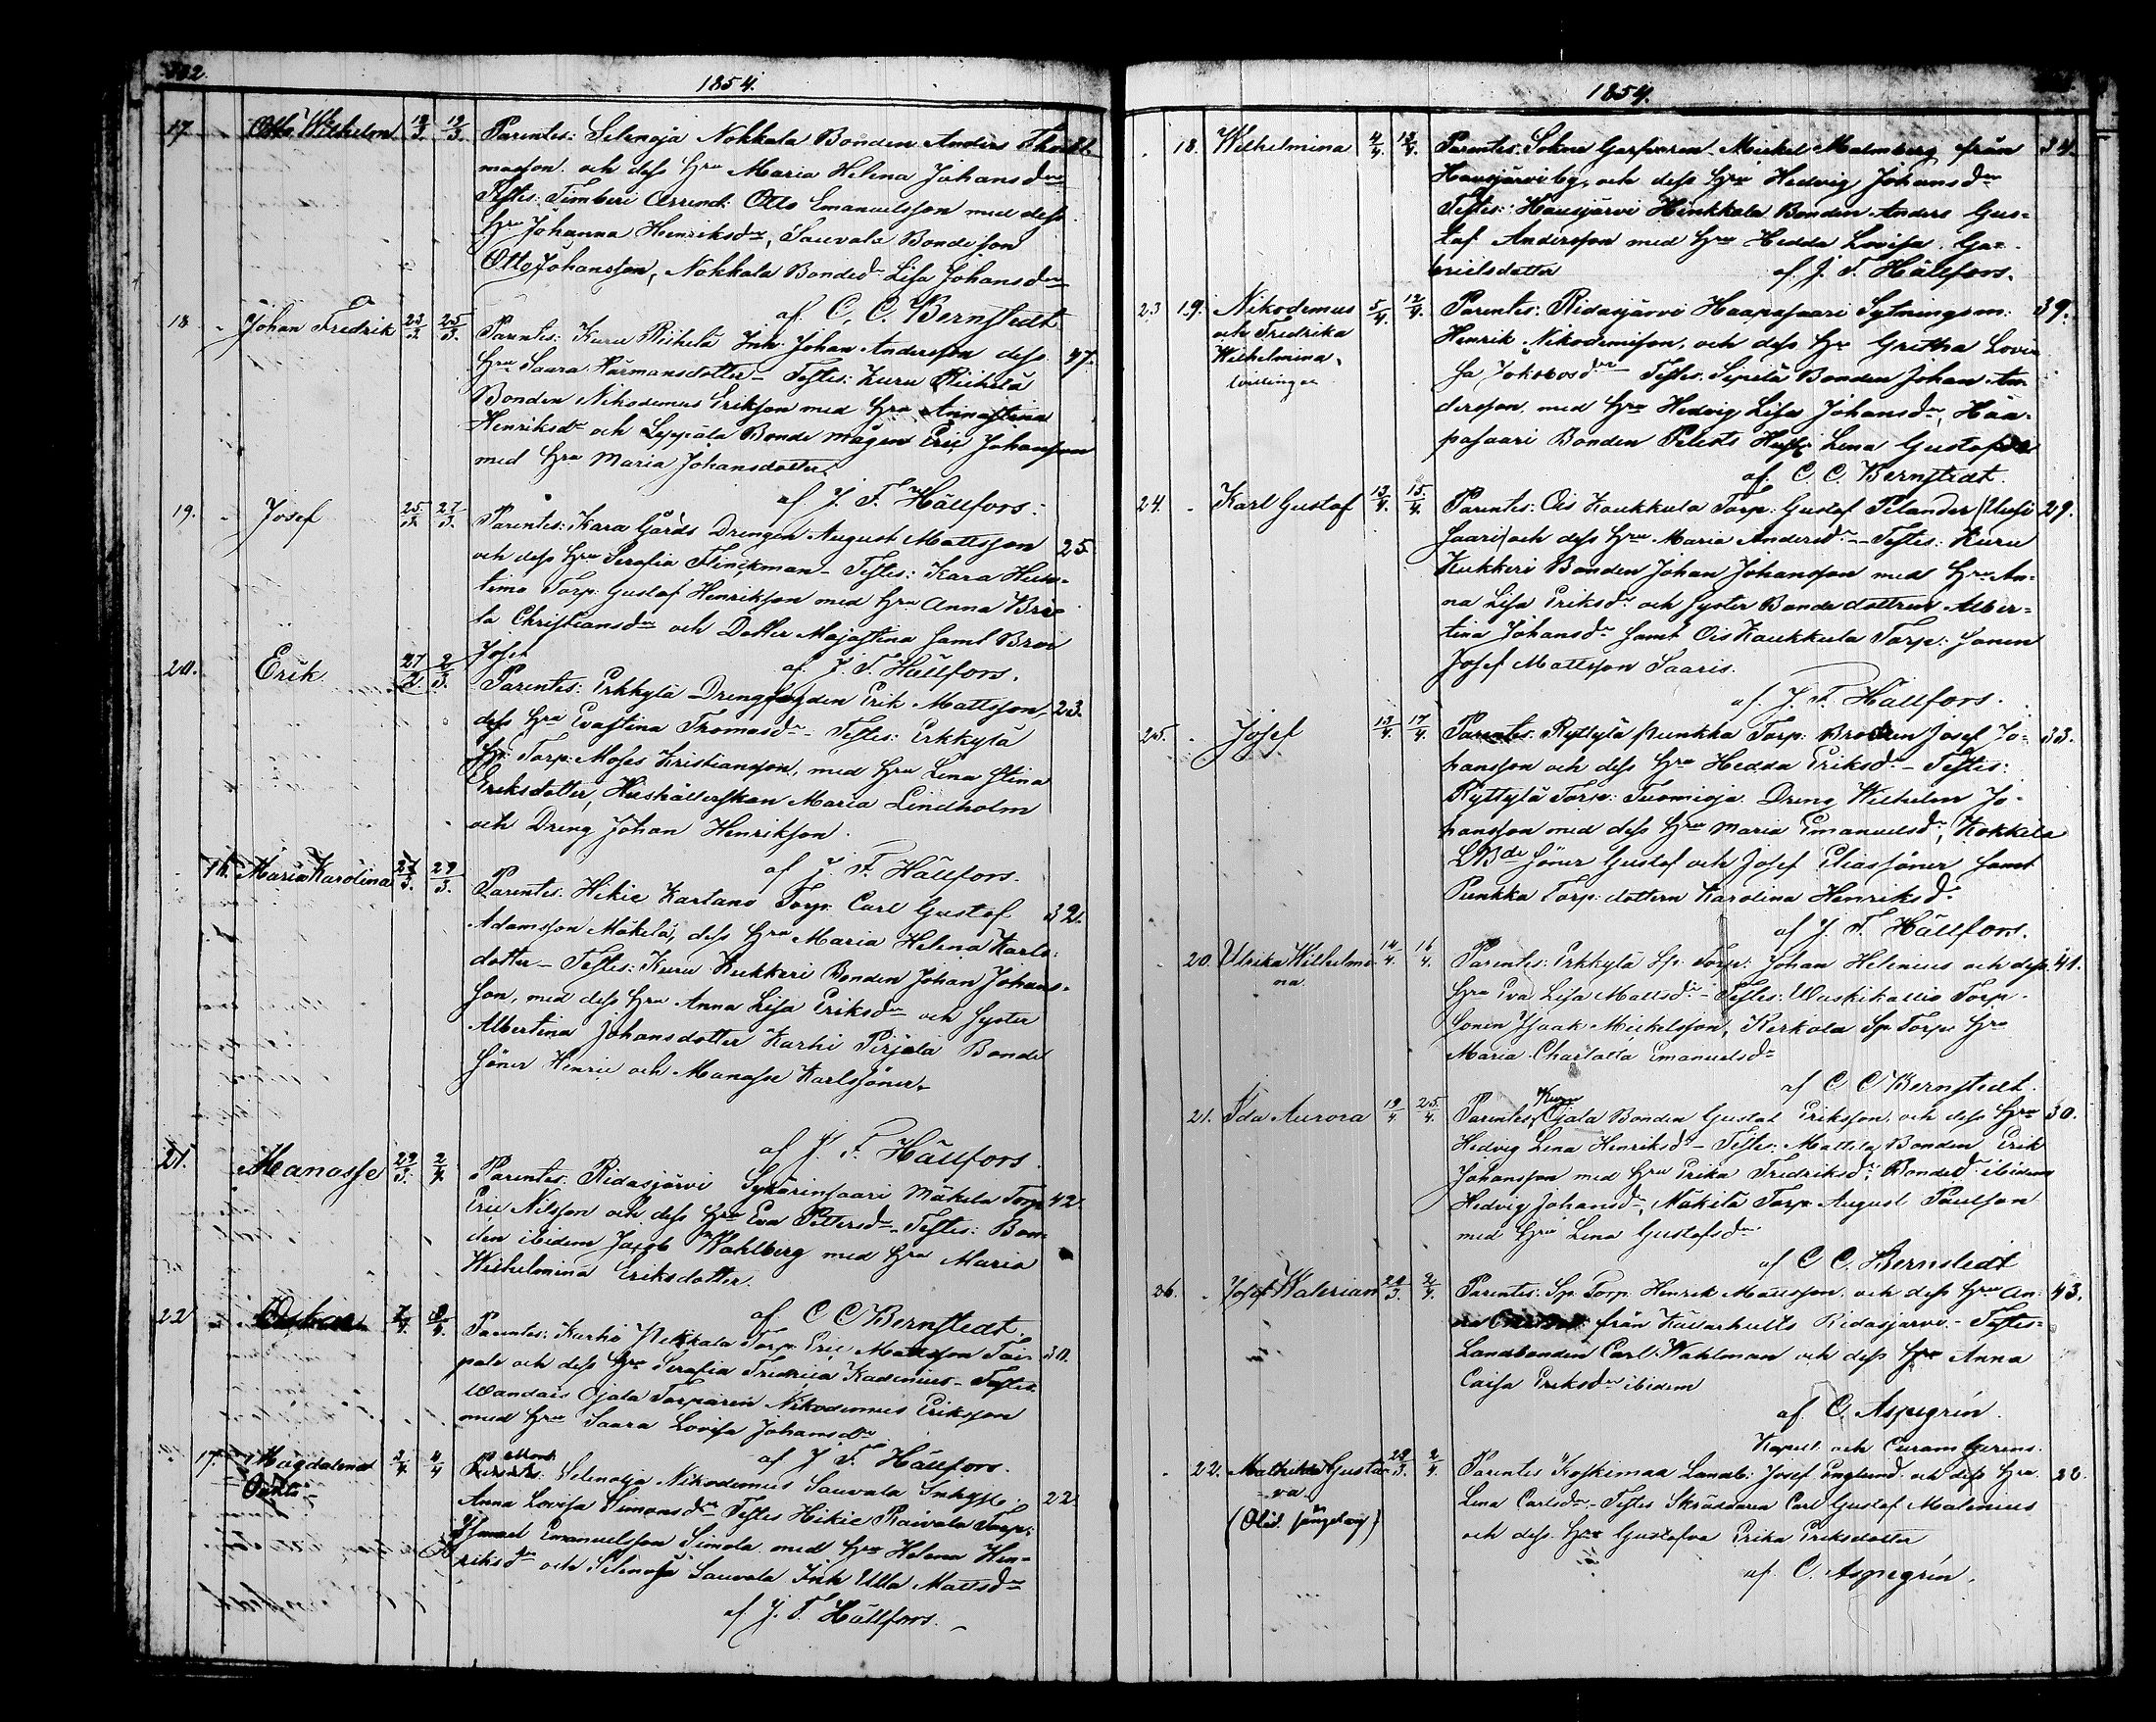 1854.
17. Otto Wilhelm 12/3. 19/3. Parentes: Selänoja Nokkala Bonden Anders Tho-
masson och dess Hru Maria Helena Johansdr
Testes: Timberi Arrend: Otto Emanuelsson med dess
Hru Johanna Henriksdr, Sauvala Bondeson
Otto Johansson, Nokkala Bonded Lisa Johansdr
af C. C. Bernstedt
18. - Johan Fredrik 23/3 25/3. Parentes: Kuru Riihelä Inh: Johan Andersson dess 47.
Hru Saara Härmansdotter - Testes: Kuru Riihelä
Bonden Nikodemus Erikson med Hru Annastina
Henriksdr och Leppälä Bonde mågen Eric Johansson
med Hru Maria Johansdotter.
af J. F. Hällfors.
19. - Josef 25/3. 27/3. Parentes: Kara Gårds Drengen August Mattsson 25.
och dess Hru Serafia Flinckman - Testes: Kara
timo Torp: Gustaf Henrikson med Hru Anna Bri-
ta Christiansdr och Dotter Majastina samt Bror
Josef
af J. F. Hällfors.
20. Erik 27/2 2/3. Parentes: Erkkylä Drengfogden Erik Mattsson, 23.
dess Hru Evastina Thomasdr - Testes: Erkkylä
Sp: Torp: Moses Kristiansson, med Hru Lena Stina
Eriksdotter, Hushållerskan Maria Lindholm
och Dreng Johan Henrikson.
af J. F. Hällfors.
16. Maria Karolina 27/3. 29/3. Parentes: Hikie Kartano Torp. Carl Gustaf 32.
Adamsson Mäkelä, dess Hru Maria Helena Karls-
dotter - Testes: Kuru Kukkeri Bonden Johan Johans-
son, med dess Hru Anna Lisa Eriksdr och Syster
Albertina Johansdotter Karhi Pirjola Bonde
Söner Henric och Manasse Karlssöner.
af J. F. Hällfors.
21. Manasse 29/3. 2/4. Parentes. Ridasjärvi Sykärinsaari Mäkelä Torp 42.
Eric Nilsson och dess Hru Eva Pettersdr Testes: Bon-
den ibidem Jacob Wahlberg med Hru Maria
Wilhelmina Eriksdotter.
af C C Bernstedt.
22 Oskar 7/4. Parentes: Karhi Torp. Eric Mattsson Tai- 30.
pale och dess Hru Serafia Fredrica Kadenius - Testes.
Wandais Ojala Torparen Nikodemus Erikson
med Hru Saara Lovisa Johansdr
af J. F. Hällfors.
17. Magdalena 2/4. 4/4 Selänoja Nikodemus Sauvala Inhys: 22
Anna Lovisa Simonsdr Testes Hikie Raivala Torp:
Ismael Emanuelsson Simola med Hru Helena Hen-
riksdr och Selänoja Sauvala Inh Ulla Mattsdr
af J. F. Hällfors. -
1854.
18. Wilhelmina 4/4. Parentes: Sokne Garfvaren Mickel Malmberg från 34.
Hausjärvi by, och dess Hru Hedvig Johansdr
Testes: Hausjärvi Hinkkala Bonden Anders Gus-
taf Andersson med Hru Hedda Lovisa Ga-
brielsdotter
af J. F. Hällfors.
23 19. Nikodemus 5/4. 12/4. Parentes: Ridasjärvi Haapasaari Sytningsm: 39.
och Fredrika Henrik Nikodemison, och dess Hr Gretha Lovi-
Wilhelmina. sa Jakobsdr - Testes. Sipilä Bonden Johan An-
tvillingar dersson, med Hru Hedvig Lisa Johansdr, Haa-
pasaari Bonden Hustr: Lena Gustafsdr
af C. C. Bernstedt.
24. - Karl Gustaf 13/4. 15/4. Parentes: Ois Kaukkula Torp: Gustaf Pelander (Uusi 29.
saari) och dess Hru Maria Andersdr - Testes: Kuru
Kukkeri Bonden Johan Johansson med Hru An-
na Lisa Eriksdr och Syster Bondedottren Alber-
tina Johansdr samt Ois Kaukkula Torp: Sonen
Josef Mattsson Saaris.
af. J. F. Hällfors.
25. - Josef 13/4. 17/4. Parentes: Ryttylä Punkka Torp: Brodren Josef Jo- 33.
hansson och dess Hru Hedda Eriksdr - Testes:
Ryttylä Torp: Tuomioja Dreng Wilhelm Jo-
hansson med dess Hru Maria Emanuelsdr, Kokkila
LBde Söner Gustaf och Josef Eliassöner samt
Punkka Torp: dottern Karolina Henriksdr
af J. F. Hällfors.
20. Ulrika Wilhelmi- 14/4. 16/4. Parentes: Erkkylä Sp. Torp: Johan Helenius och dess 41.
na. Hru Eva Lisa Mattsdr - Testes: Waskikallio Torp.
Sonen Isaak Mickelsson, Kerkola Sp Torps Hru
Maria Charlotta Emanuelsdr
af C C Bernstedt.
21. Ida Aurora 19/4. 25/4. Parentes, Kuru Ojala Bonden Gustaf Eriksson, och dess Hru 30.
Hedvig Lena Henriksdr - Testes: Mattila Bonden Erik
Johansson med Hru Erika Fredriksdr, Bonded ibidem
Hedvig Johansdr, Mäkilä Torp August Paulson
med Hru Lena Gustafsdr
af C C. Bernstedt
26. - Josef Walerian 2/4. Parentes: Sp. Torp. Henrik Mattsson, och dess Hru An- 43.
från Ridasjärvi. - Testes=
Landbonden Carl Wahlman och dess Hru Anna
Caisa Eriksdr ibidem
af C. Aspegrén.
Kapell. och Curam Gerens.
22. Gusta- 2/4. Parentes Koskimaa Landb: Josef Englund och dess Hru 22.
va Lena Carlsdr - Testes Skräddaren Carl Gustaf Malenius
och dess Hru Gustafva Erika Eriksdotter
af C. Aspegrén.